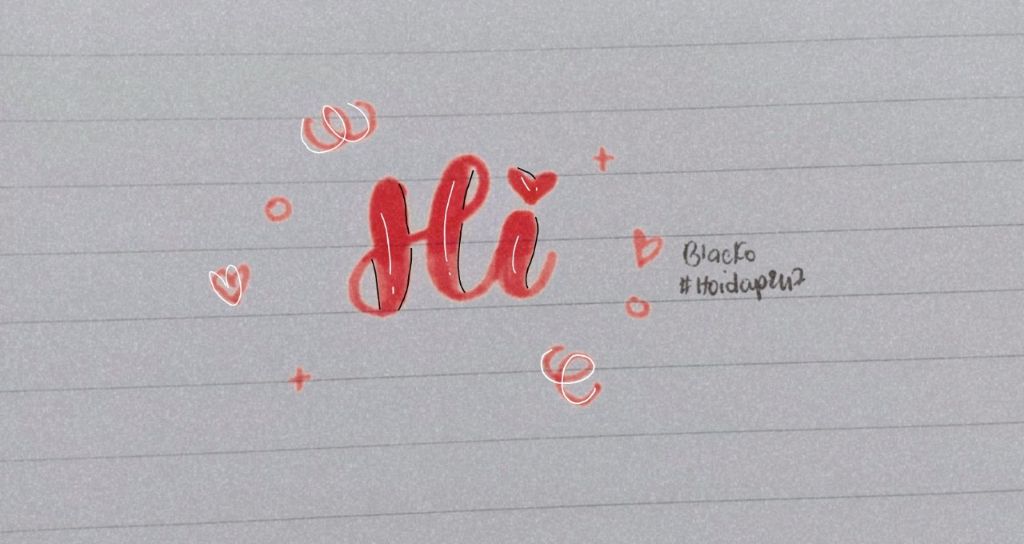 Hi
Blacko
#Hoidap247